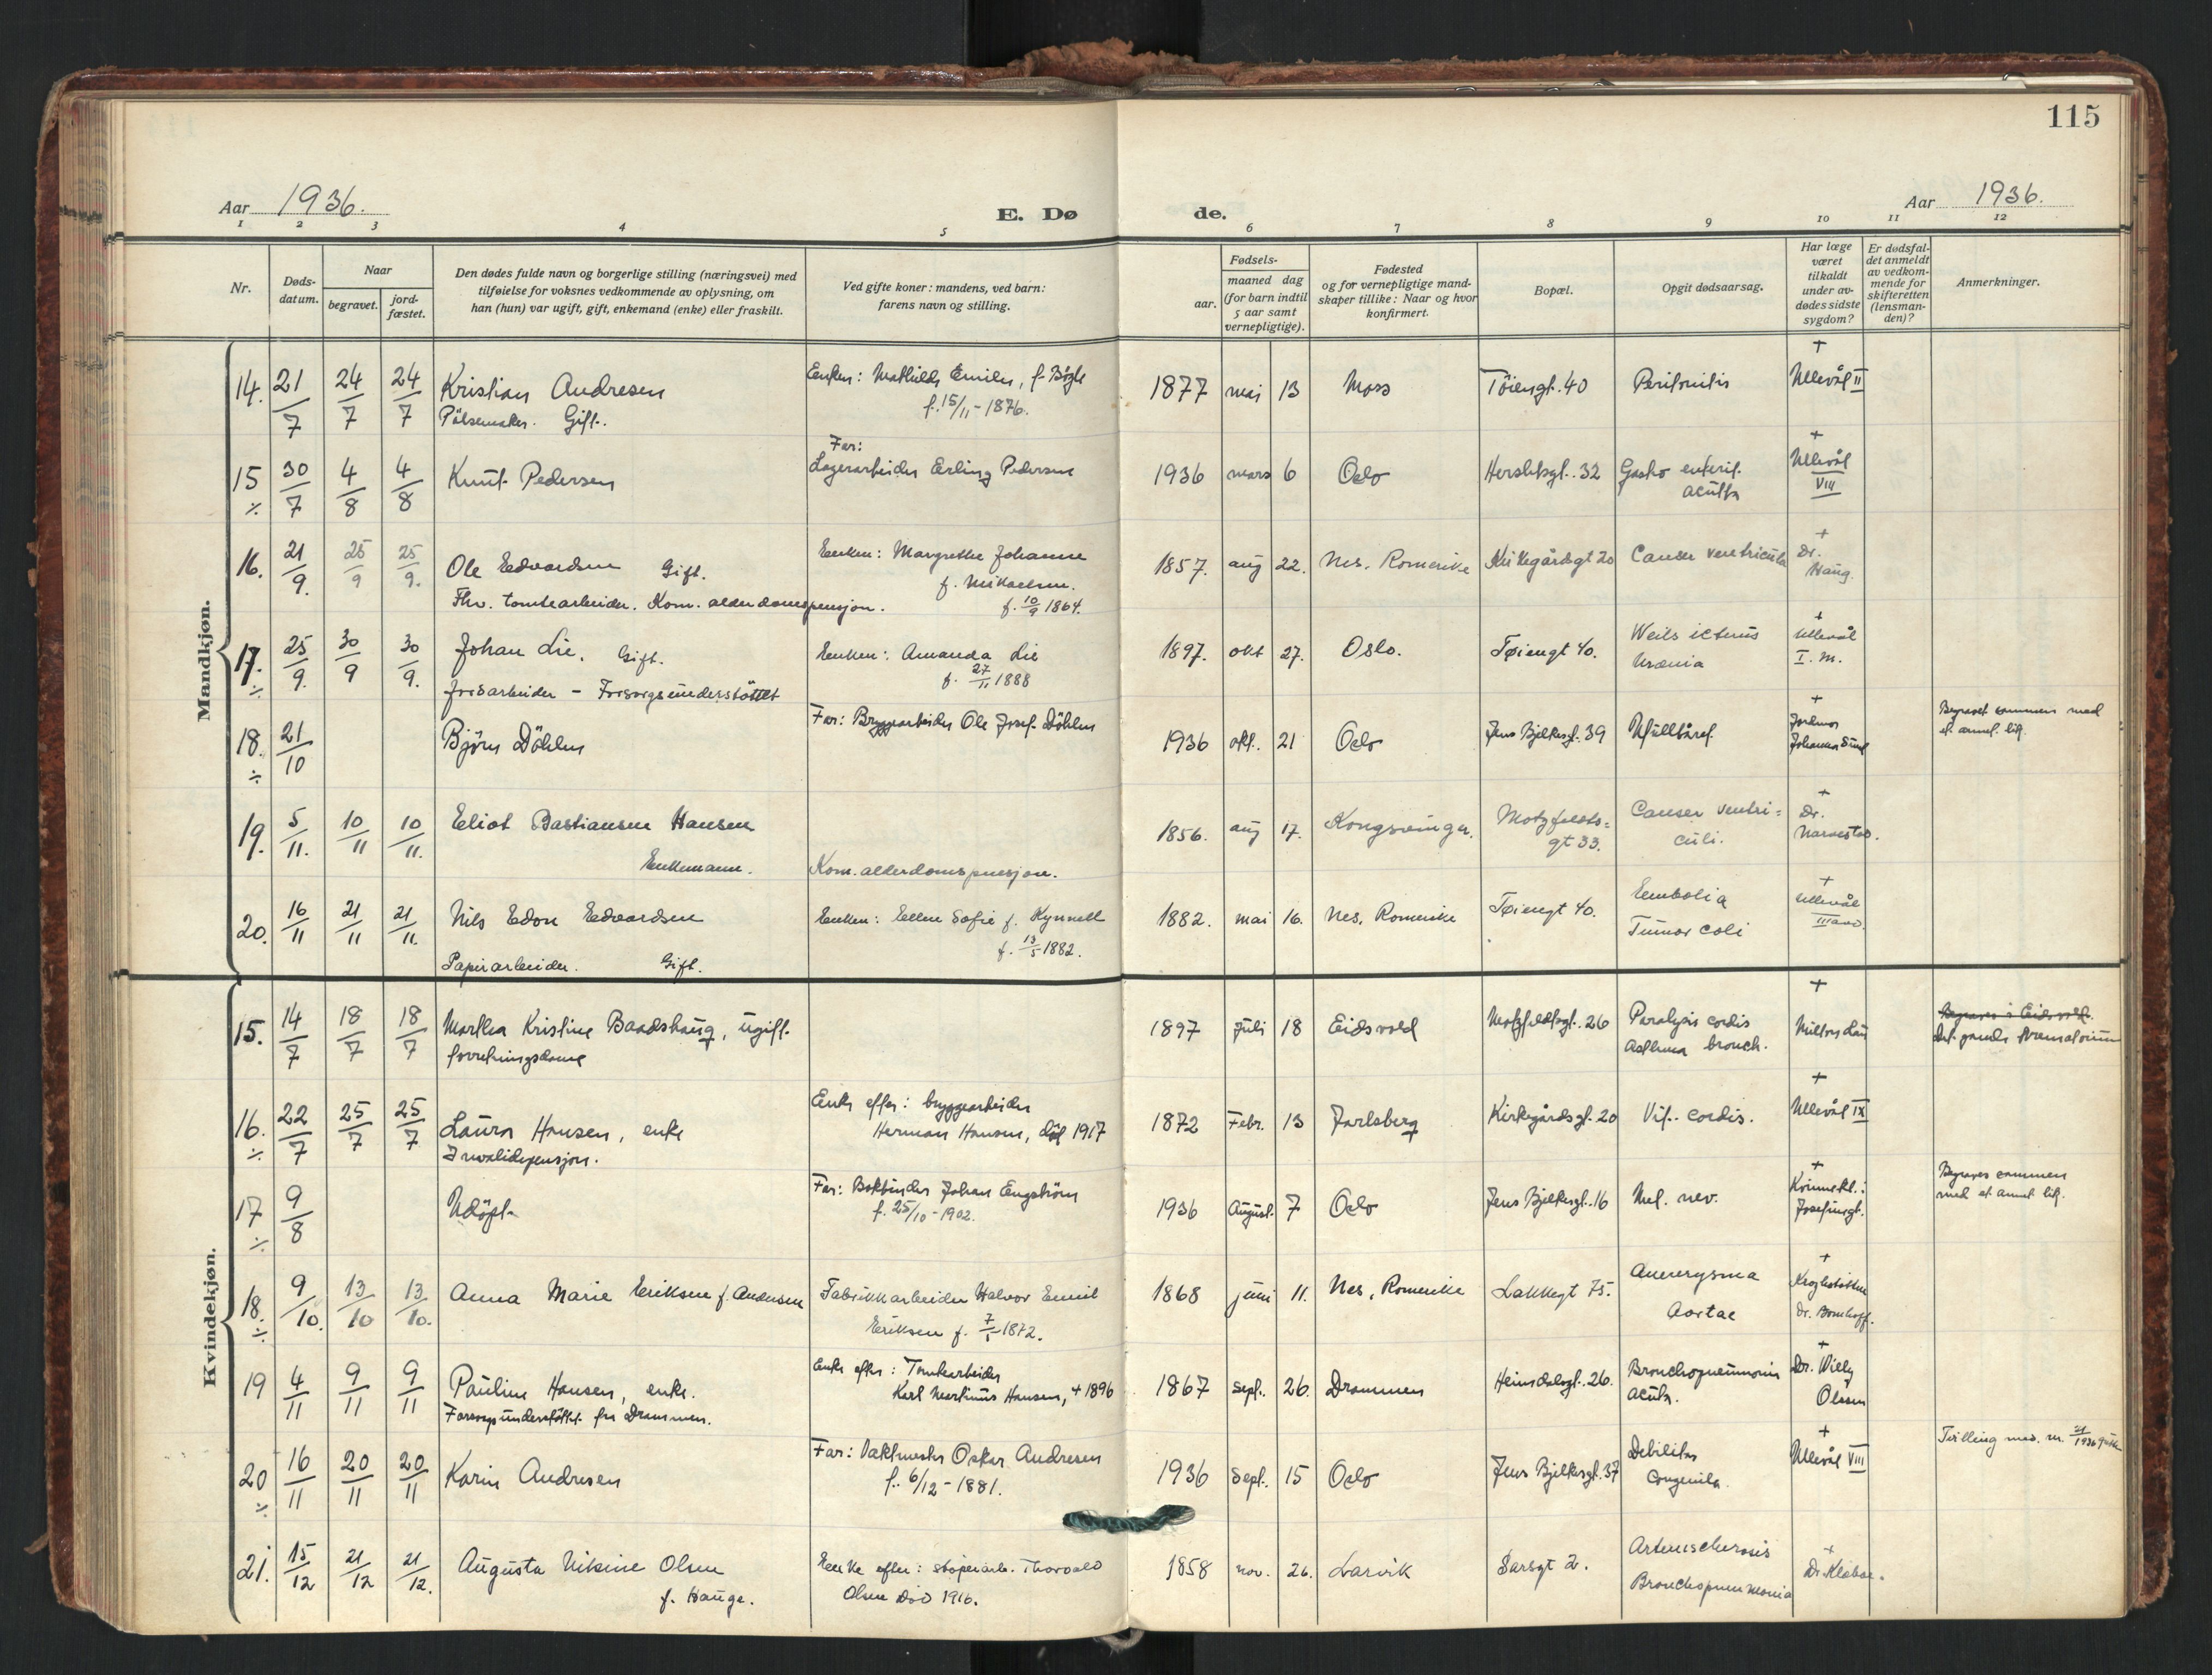 115
Aar 1936.
E. Dø
de.
Aar 1936.
1 2 3 4 5 6 7 8 9 10 11 12
Nr.
Døds-
datum.
Naar
begravet.
jord-
fæstet.
Den dødes fulde navn og borgerlige stilling (næringsvei) med
tilføielse for voksnes vedkommende av oplysning, om
han (hun) var ugift, gift, enkemand (enke) eller fraskilt.
Ved gifte koner: mandens, ved barn:
farens navn og stilling.
Fødsels-
aar.
maaned dag
(for barn indtil
5 aar samt
vernepligtige).
Fødested
og for vernepligtige mand-
skaper tillike: Naar og hvor
konfirmert.
Bopæl.
Opgit dødsaarsag.
Har læge
været
tilkaldt
under av-
dødes sidste
sygdom?
Er dødsfal-
det anmeldt
av vedkom-
mende for
skifteretten
(lensman-
den)?
Anmerkninger.
Mandkjøn.
14. 21/7 24/7 24/7 Kristian Andresen
Pölsemaker. Gift.
Enken: Mathilde Emilie, f.
f. 15/11-1876.
1877 mai 13 Moss Töiengt. 40 Peritonitis + Ullevål II
15 ÷ 30/7 4/8 4/8 Knut Pedersen
Far:
Lagerarbeider Erling Pedersen
1936 mars 6 Oslo Herslebsgt. 32 Gastro enterit.
acuta
+ Ullevål
VIII
16. 21/9. 25/9 25/9. Ole Edvardsen Gift.
Fhv. tomtearbeider. Kom. alderdomspensjon.
Enken: Margrethe Johanne
f. Mikaelsen.
f. 10/9 1864.
1857. aug 22. Nes. Romerike Kirkegårdsgt 20 Cancer ventricula
+ Dr.
Haug.
17. ÷ 25/9. 30/9 30/9. Johan Lie. Gift.
Forsorgsunderstöttet
Enken: Amanda Lie
f. 27/11 1888
1897. okt 27. Oslo. Tøiengt 40. Weils icterus
Uræmia
+ Ullevål
I. m.
18. ÷ 21/10 Björn Döhlen
Far: Bryggearbeider Ole Josef Döhlen
1936 okt. 21 Oslo Jens Bjelkesgt. 39 Ufullbåret
+ Jordmor
Johanna
Begravet sammen med
et annet lik.
19. 5/11. 10/11 10/11. Eliot Bastiansen Hansen
Enkemann.
Kom. alderdomspensjon.
1856. aug 17. Kongsvinger. Motzfeldts=
gt 33.
Cancer ventri=
culi.
+ Dr.
20. 16/11 21/11 21/11. Nils Edon Edvardsen
Papirarbeider. Gift.
Enken: Ellen Sofie f. Kynnell
f. 13/5 1882.
1882. mai 16. Nes, Romerike Tøiengt 40. Embolia
Tumor coli
+ Ullevål
III avd.
Kvindekjøn.
15. 14/7 18/7 18/7 Martha Kristine Baadshaug, ugift.
forretningsdame
1897 juli 18 Eidsvold Motzfeldtsgt. 26 Paralysis cordis
Asthma bronch.
+
Begraves i Eidsvold.
Det gamle krematorium
16. ÷ 22/7 25/7 25/7 Laura Hansen, enke
Invalidepensjon.
Enke efter: bryggearbeider
Herman Hansen, död 1917
1872 Febr. 13 Jarlsberg Kirkegårdsgt. 20 Vit. cordis. + Ullevål IX
17 ÷ 9/8 Udöpt
Far: Bokbinder Johan Engström
f. 25/10-1902.
1936 August. 7 Oslo Jens Bjelkesgt. 16 Mel. nev.
+ Kvinnekl.:
Josefinegt.
Begraves sammen
med et annet lik.
18. ÷ 9/10. 13/10 13/10. Anna Marie Eriksen f. Andersen
Fabrikkarbeider Halvor Emil
Eriksen f. 7/1 1872.
1868 juni 11. Nes, Romerike Lakkegt 75. Aneurysma
Aortae
+ Kroghstötten
Dr. Bomhoff.
19 4/11 9/11 9/11 Pauline Hansen, enke.
Forsorgsunderstöttet fra Drammen.
Enke efter: Tomtearbeider
Karl Martinius Hansen, + 1896
1867 Sept. 26. Drammen Heimdalsgt. 26. Bronchopneumonia
acuta.
+ Dr. Willy
Olssen
20 ÷ 16/11 20/11 20/11 Karin Andresen
Far: Vaktmester Oskar Andresen
f. 6/12-1881.
1936 Sept. 15 Oslo Jens Bjelkesgt. 37 Debilitas
congenita.
+ Ullevål VIII
Tvilling med. nr.
21. 15/12 21/12 21/12. Augusta Nikine Olsen
f. Hauge.
Enke efter: støperiarb. Thorvald
Olsen död 1916.
1858 nov. 26. Larvik Sarsgt 2. Arteriosclerosis
Bronchopneumonia
+ Dr.